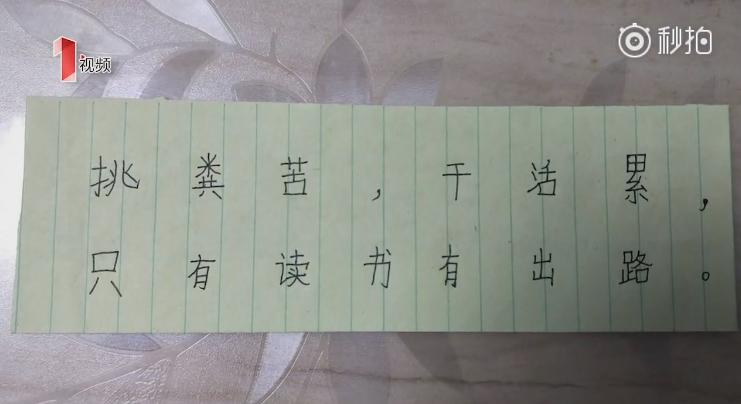 1视频
秒拍
挑粪苦，干活累，
只有读书有出路。